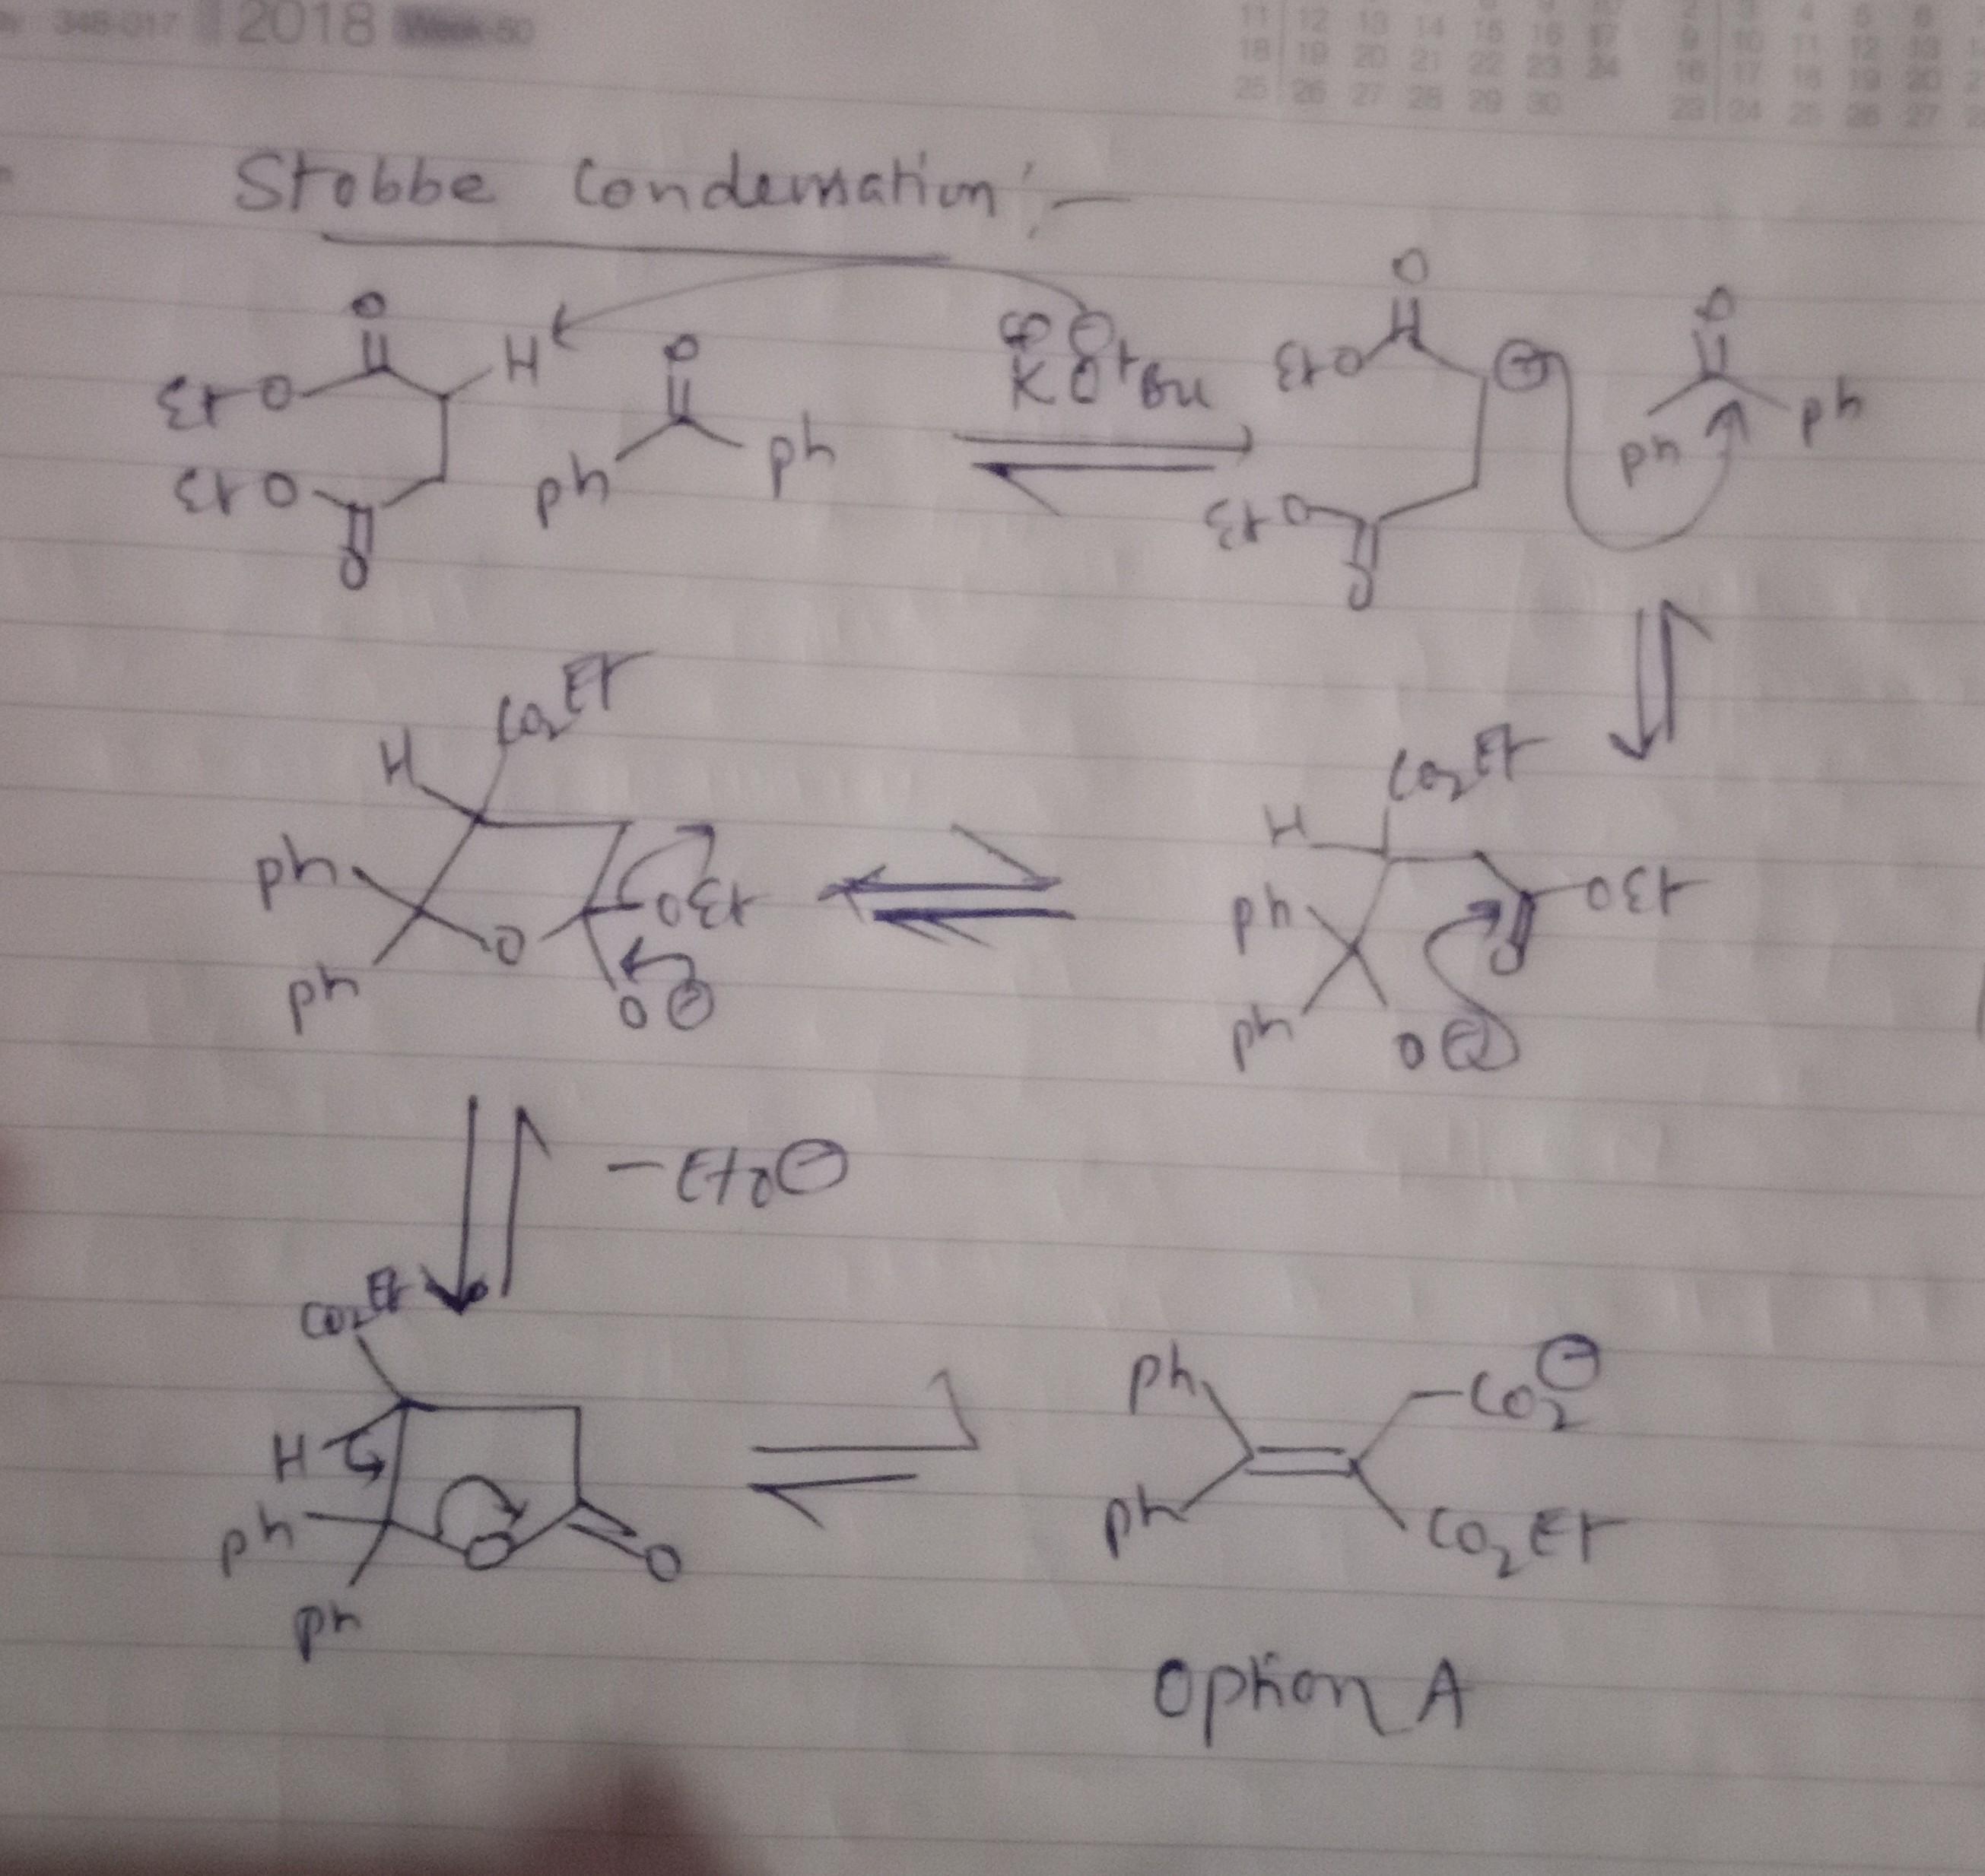 348-017 2018 Week-50
11 12 13 14 15 16 17
18 19 20 21 22 23 24
25 26 27 28 29 30
9 10 11 12 13
16 17 18 19 20
23 24 25 26 27
Stobbe Condensation :-
O H O K⊕ ⊖OtBu O ⊖ O
EtO Ph Ph EtO Ph Ph
EtO O EtO O
H CO2Et H CO2Et
Ph Ph O OEt O⊖ Ph Ph O⊖ O OEt
-EtO⊖
CO2Et H Ph Ph O O
Ph Ph CO2⊖ CO2Et
Option A